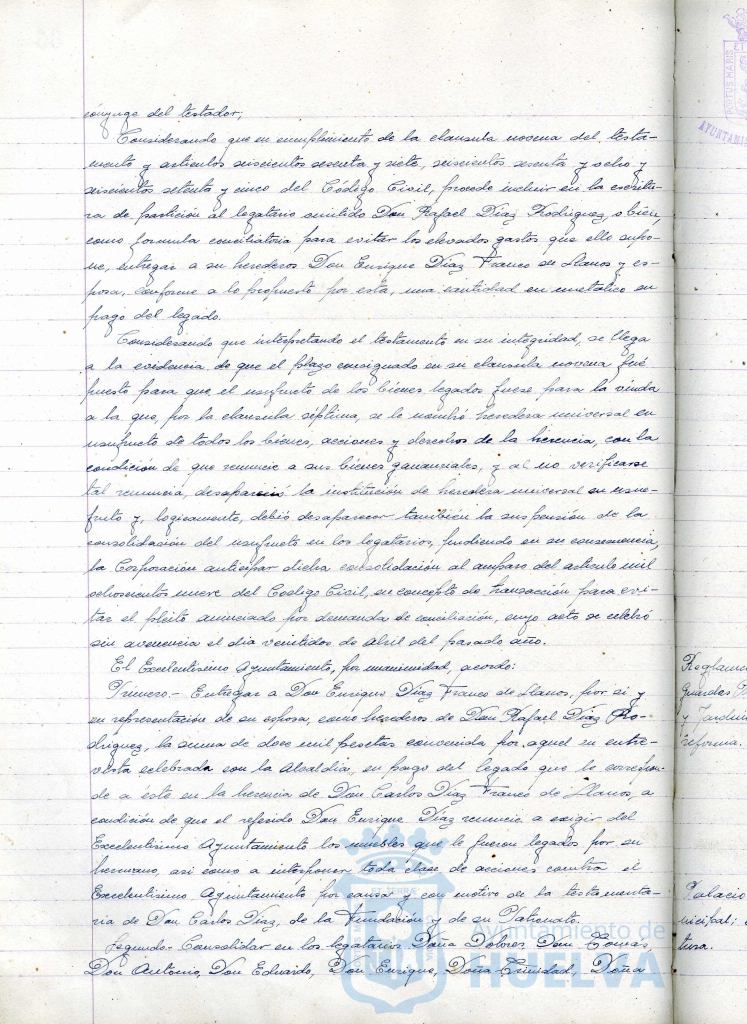 cónyuge del testador;
Considerando que en cumplimiento de la clausula novena del testa-
mento y articulos seiscientos sesenta y siete, seiscientos sesenta y ocho y
seiscientos setenta y cinco del Código Civil, procede incluir en la escritu-
ra de partición al legatario omitido Don Rafael Díaz Rodriguez, o bien,
como formula conciliatoria para evitar los elevados gastos que ello supo-
ne, entregar a su herederos Don Enrique Díaz Franco de Llanos y es-
posa, conforme a lo propuesto por esta, una cantidad en metalico en
pago del legado.
Considerando que interpretando el testamento en su integridad, se llega
a la evidencia de que el plazo consignado en su clausula novena fué
puesto para que el usufructo de los bienes legados fuese para la viuda
a la que, por la clausula séptima, se le nombró heredera universal en
usufructo de todos los bienes, acciones y derechos de la herencia, con la
condición de que renuncie a sus bienes gananciales, y al no verificarse
tal renuncia, desapareció la institución de heredera universal en usu-
fruto y, logicamente, debió desaparecer también la suspensión de la
consolidación del usufructo en los legatarios, pudiendo en su consecuencia,
la Corporación anticipar dicha consolidación al amparo del articulo mil
ochocientos nueve del Codigo Civil, en concepto de transacción para evi-
tar el pleito anunciado por demanda de conciliación, cuyo acto se celebró
sin avenencia el dia veintidos de Abril del pasado año.
El Excelentisimo Ayuntamiento, por unanimidad, acordó:
Primero.- Entregar a Don Enrique Díaz Franco de Llanos, por si y
en representación de su esposa, como herederos de Don Rafael Díaz Ro-
driguez, la suma de doce mil pesetas convenida por aquel en entre-
vista celebrada con la Alcaldia, en pago del legado que le correspon-
de a éste en la herencia de Don Carlos Díaz Franco de Llanos, a
condición de que el referido Don Enrique Díaz renuncie a exigir del
Excelentisimo Ayuntamiento los muebles que le fueron legados por su
hermano, asi como a interponer toda clase de acciones contra el
Excelentisimo Ayuntamiento por causa y con motivo de la testamenta-
ria de Don Carlos Díaz, de la Fundación y de su Patronato.
Segundo.- Consolidar en los legatarios Doña Dolores, Don Tomas,
Don Antonio, Don Eduardo, Don Enrique, Doña Trinidad, Doña
Reglamen
guardas P
y Jardin
reforma.
Palacio
nicipal:
tura.
Ayuntamiento de
HUELVA
PORTUS MARIS ET
AYUNTAMI